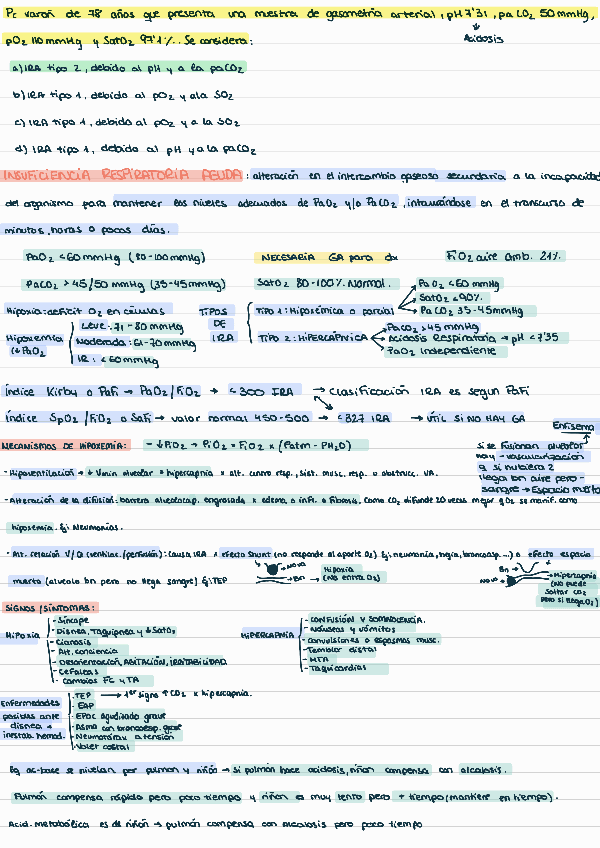 Pc varón de 78 años que presenta una muestra de gasometría arterial, pH 7'31, pa CO2 50 mmHg,
Acidosis
pO2 110 mmHg y SatO2 97'1%. Se considera:
a) IRA tipo 2, debido al pH y a la paCO2
b) IRA tipo 1, debido al pO2 y a la SO2
c) IRA tipo 1, debido al pO2 y a la SO2
d) IRA tipo 1, debido al pH y a la paCO2
INSUFICIENCIA RESPIRATORIA AGUDA: alteración en el intercambio gaseoso secundaria a la incapacidad
del organismo para mantener los niveles adecuados de PaO2 y/o PaCO2, instaurándose en el transcurso de
minutos, horas o pocos días.
PaO2 < 60 mmHg (80-100 mmHg) NECESARIA GA para dx FiO2 aire amb. 21%
PaCO2 > 45/50 mmHg (35-45 mmHg) SatO2 80-100% Normal.
Hipoxia: deficit O2 en células
Hipoxemia (↓PaO2
Leve: 71-80 mmHg
Moderada: 61-70 mmHg
IR: < 60 mmHg
TIPOS DE IRA
TIPO 1: Hipoxémica o parcial
PaO2 < 60 mmHg
SatO2 < 90%
PaCO2 35-45 mmHg
TIPO 2: HIPERCÁPNICA
PaCO2 > 45 mmHg
Acidosis Respiratoria → pH < 7'35
PaO2 Independiente
Índice Kirby o PaFi → PaO2/FiO2 → < 300 IRA → Clasificación IRA es según PaFi
Índice SpO2/FiO2 o SaFi → valor normal 450-500 → < 327 IRA → ÚTIL SI NO HAY GA
Enfisema
si se fusionan alveolos
hay - vascularización
q si hubiera 2
llega bn aire pero -
sangre → Espacio muerto
MECANISMOS DE HIPOXEMIA: - ↓FiO2 → PiO2 = FiO2 x (Patm - PH2O)
- Hipoventilación → ↓ Vmin alveolar = hipercapnia x alt. centro resp., sist. musc. resp. o obstrucc. VA.
- Alteración de la difusión: barrera alveolocap. engrosada x edema, o infl. o fibrosis. Como CO2 difunde 20 veces mejor q O2 se manif. como
hipoxemia. Ej: Neumonías.
- Alt. relación V/Q (ventilac./perfusión): causa IRA x efecto Shunt (no responde al aporte O2) Ej: neumonía, broncoesp...) o efecto espacio
muerto (alveolo bn pero no llega sangre) Ej: TEP
Bn
Hipoxia
(No entra O2)
Bn
Hipercapnia
(No puede
soltar CO2
pero sí llega O2)
SIGNOS/SÍNTOMAS:
HIPOXIA
- Síncope
- Disnea, Taquipnea y ↓SatO2
- Cianosis
- Alt. conciencia
- Desorientación, AGITACIÓN, IRRITABILIDAD
- Cefaleas
- Cambios FC y TA
HIPERCAPNIA
- CONFUSIÓN Y SOMNOLENCIA.
- Náuseas y vómitos
- Convulsiones o espasmos musc.
- Temblor distal
- HTA
- Taquicardias
Enfermedades
posibles ante
disnea +
inestab. hemod.
- TEP → 1er signo ↑CO2 x hipercapnia.
- EAP
- EPOC agudizado grave
- Asma con broncoesp. grave
- Neumotórax a tensión
- Volet costal
Eq ac-base se nivelan por pulmón y riñón → si pulmón hace acidosis, riñón compensa con alcalosis.
Pulmón compensa rápido pero poco tiempo y riñón es muy lento pero + tiempo (mantiene en tiempo).
Acid. metabólica es de riñón → pulmón compensa con alcalosis pero poco tiempo